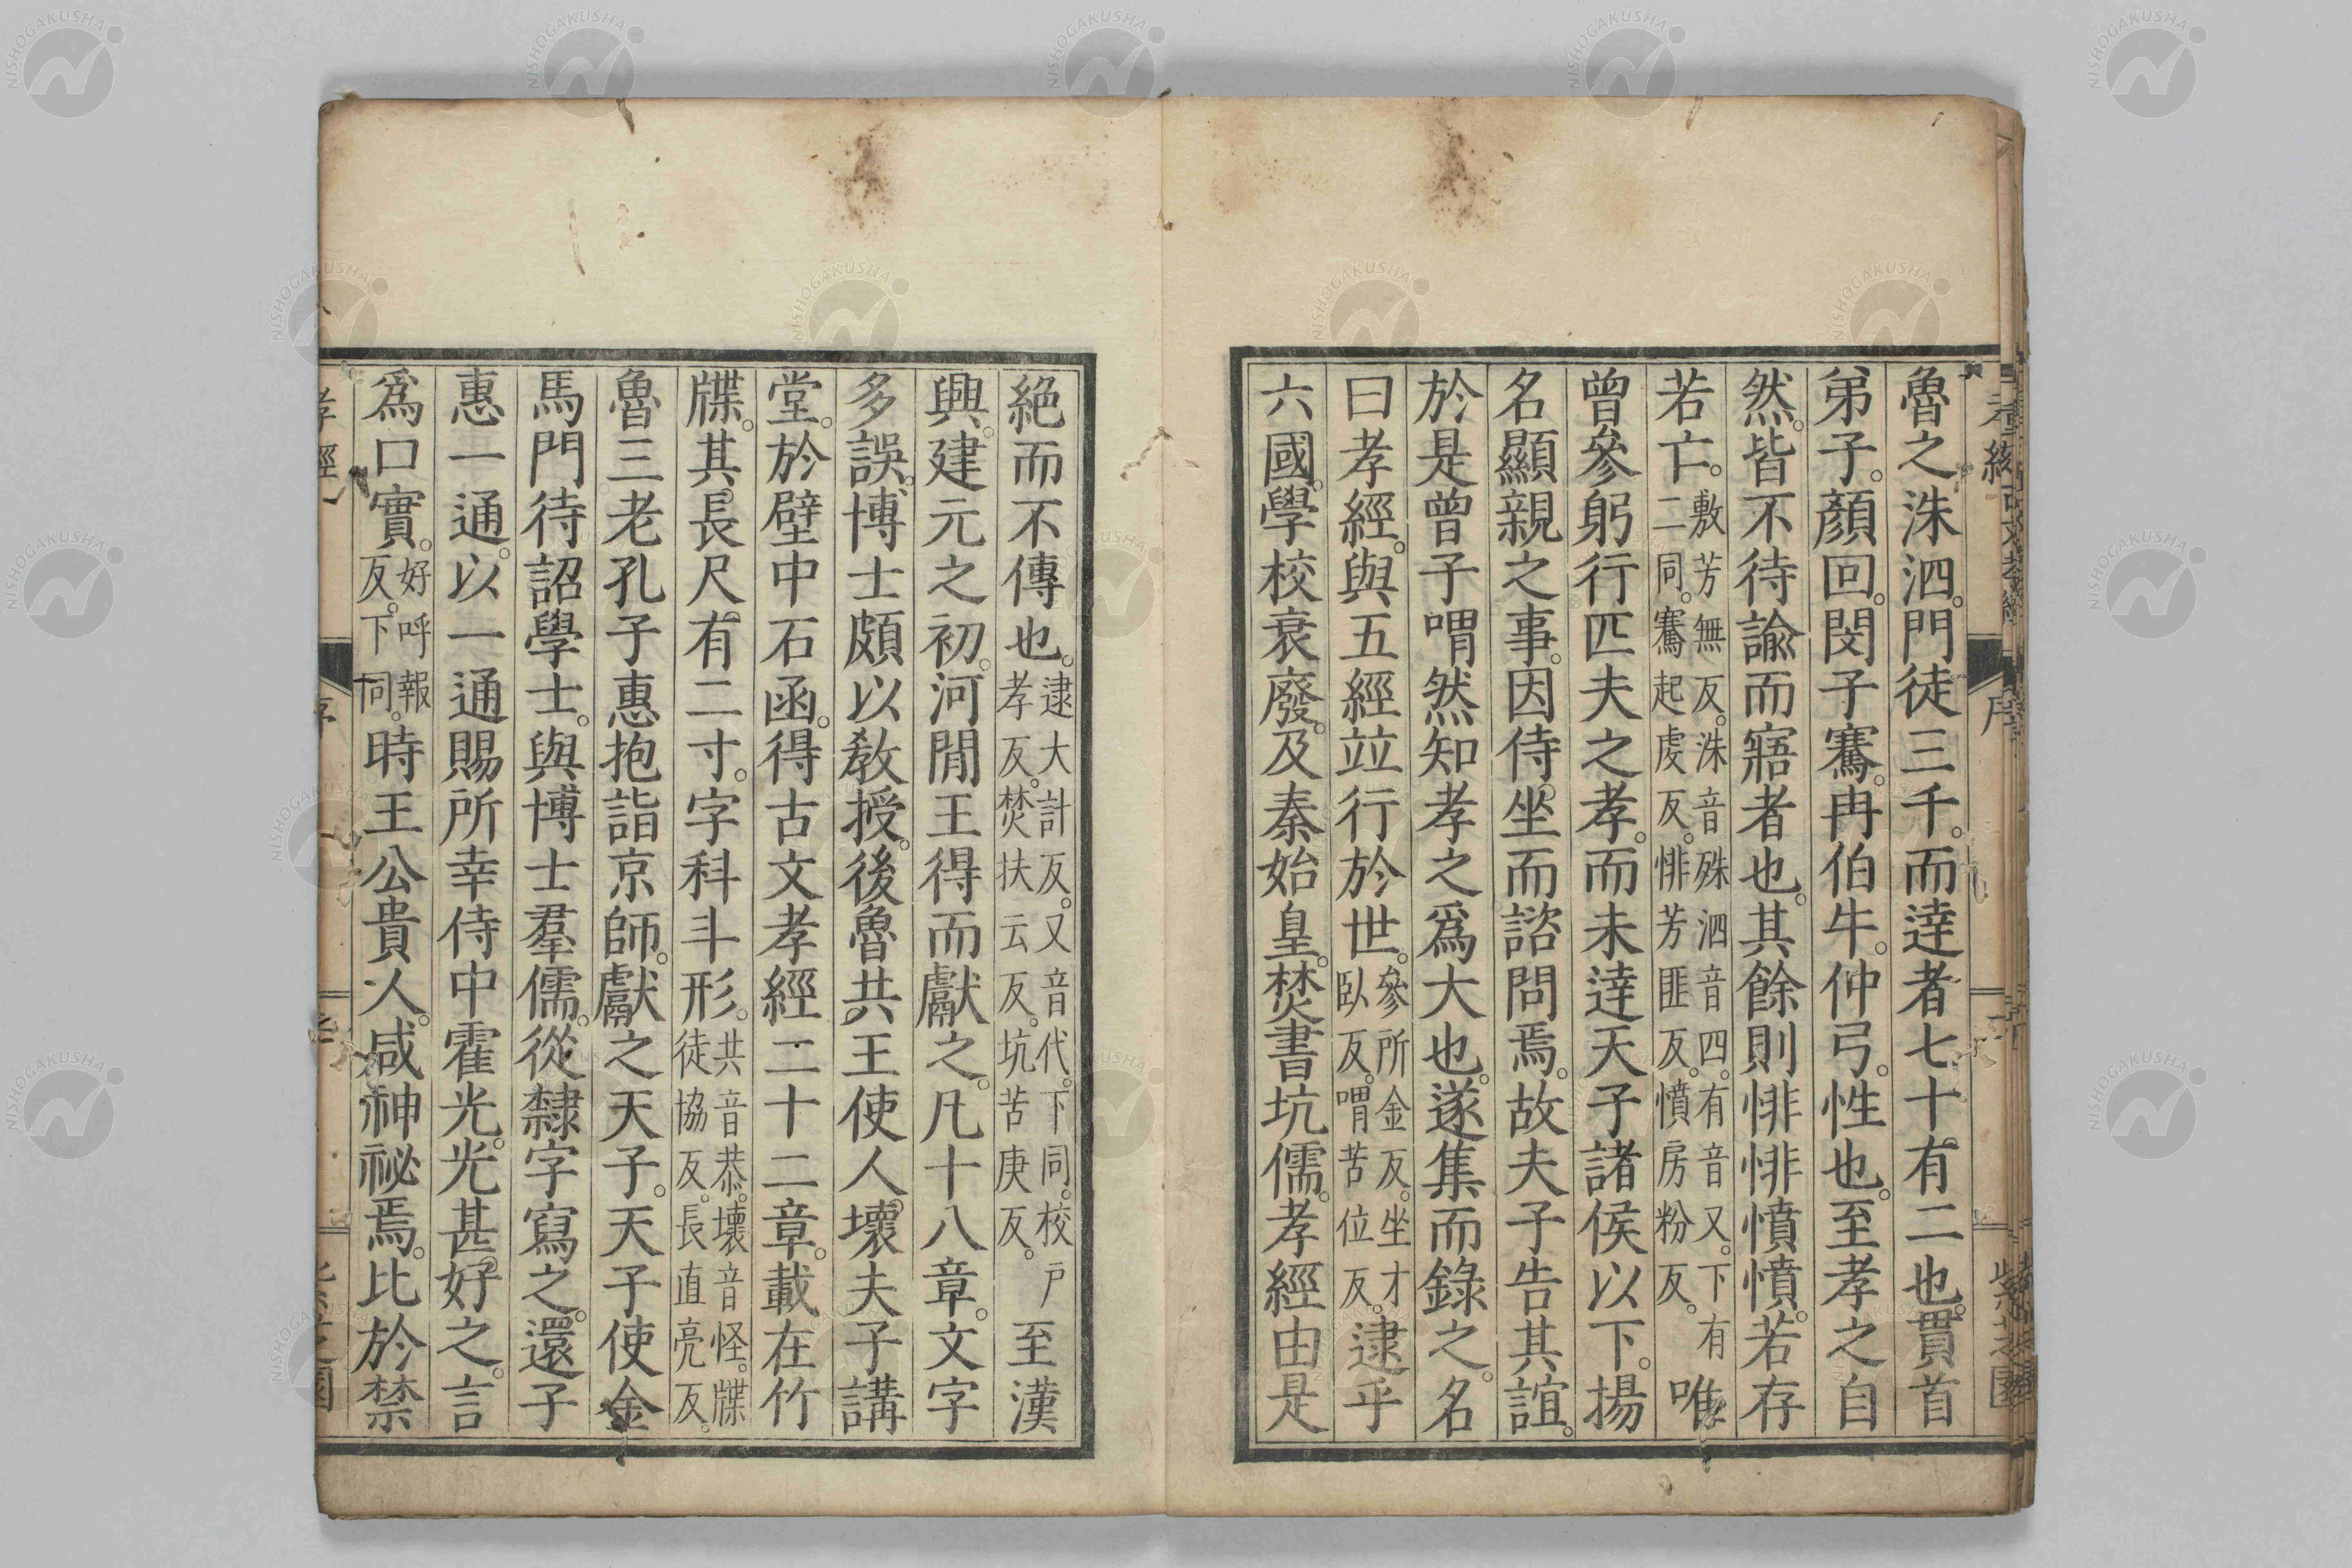 魯之洙泗。門徒三千。而達者七十有二也。貫首
弟子。顏回。閔子騫。冉伯牛。仲弓。性也。至孝之自
然。皆不待諭而寤者也。其餘則悱悱憤憤。若存
若亡。敷芳無反。洙音殊泗音四。有音又。下有二同。騫起虔反。悱芳匪反。憤房粉反。唯
曾參躬行匹夫之孝。而未達天子諸侯以下。揚
名顯親之事。因侍坐而諮問焉。故夫子告其誼。
於是曾子喟然知孝之爲大也。遂集而錄之。名
曰孝經。與五經竝行於世。參所金反。坐才臥反。喟苦位反。逮乎
六國。學校衰廢。及秦始皇。焚書坑儒。孝經由是
絕而不傳也。逮大計反。又音代。下同。校戶孝反。焚扶云反。坑苦庚反。至漢
興。建元之初。河閒王得而獻之。凡十八章。文字
多誤。博士頗以敎授。後魯共王使人。壞夫子講
堂。於壁中石函。得古文孝經二十二章。載在竹
牒。其長尺有二寸。字科斗形。共音恭。壞音怪。牒徒協反。長直亮反。
魯三老孔子惠抱詣京師。獻之天子。天子使金
馬門待詔學士。與博士羣儒。從隸字寫之。還子
惠一通。以一通賜所幸侍中霍光。光甚好之。言
爲口實。好呼報反。下同。時王公貴人。咸神祕焉。比於禁